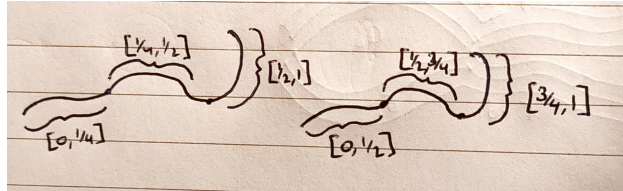 [1/4, 1/2]
[1/2, 1]
[0, 1/4]
[1/2, 3/4]
[3/4, 1]
[0, 1/2]